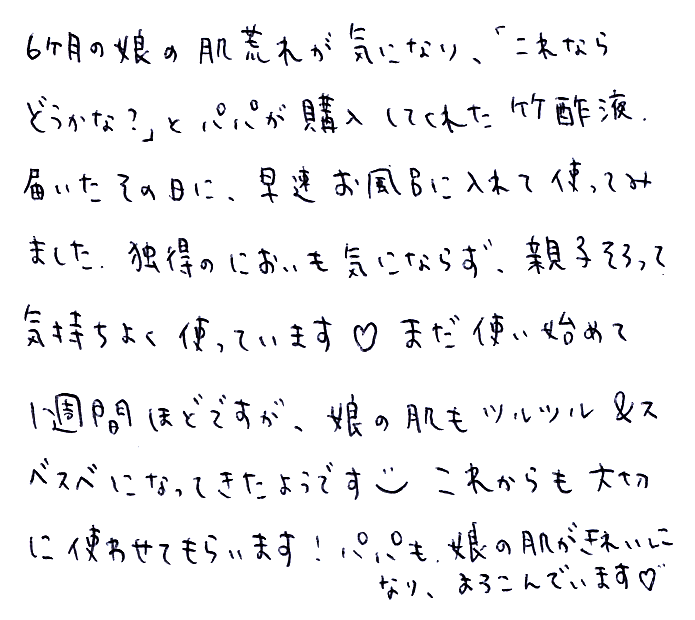 6ケ月の娘の肌荒れが気になり、「これなら
どうかな?」とパパが購入してくれた竹酢液.
届いたその日に、早速お風呂に入れて使ってみ
ました. 独得のにおいも気にならず、親子そろって
気持ちよく使っています♡ まだ使い始めて
1週間ほどですが、娘の肌もツルツル&ス
ベスベになってきたようです これからも大切
に使わせてもらいます! パパも、娘の肌がきれいに
なり、よろこんでいます♡